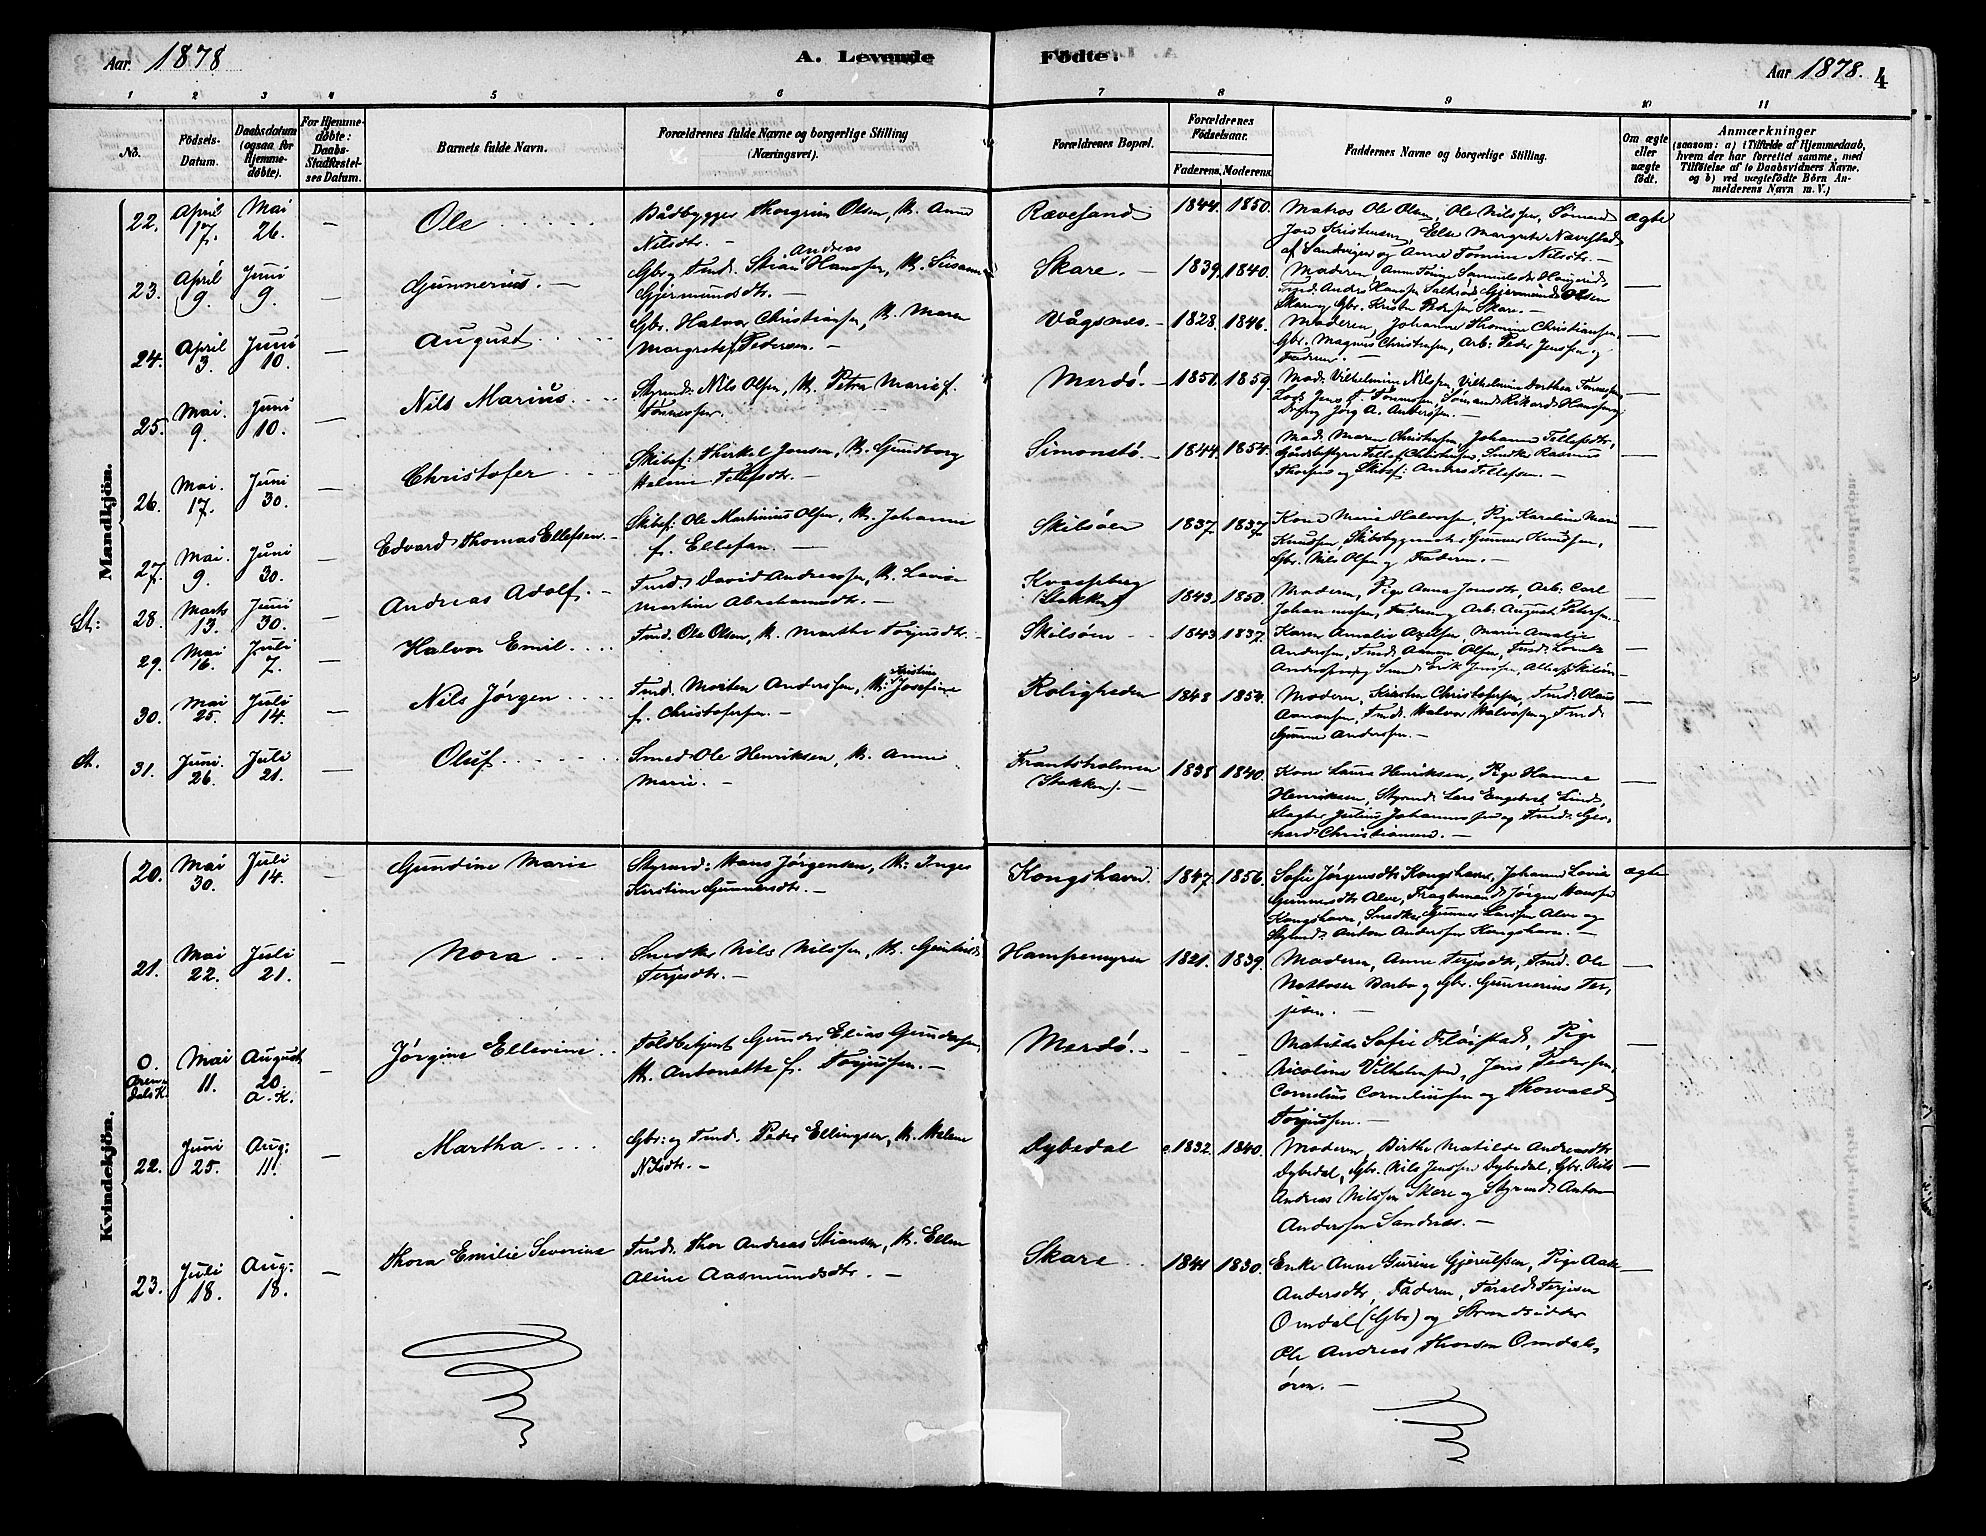 Aar. 1878
A. Levende
Födte.
Aar 1878. 4
1 2 3 4 5 6 7 8 9 10 11
No.
Födsels-
Datum.
Daabsdatum
(ogsaa for
Hjemme-
döbte).
For Hjemme-
döbte:
Daabs-
Stadfæstel-
ses Datum.
Barnets fulde Navn.
Forældrenes fulde Navne og borgerlige Stilling
(Næringsvei).
Forældrenes Bopæl.
Forældrenes
Födselsaar.
Faderens. Moderens.
Faddernes Navne og borgerlige Stilling.
Om ægte
eller
uægte
födt.
Anmærkninger
(saasom: a) i Tilfælde af Hjemmedaab,
hvem der har forrettet samme, med
Tilföielse af to Daabsvidners Navne.
og b) ved uægtefödte Börn An-
melderens Navn m. V.)
Mandkjön.
22. April 17. Mai 26. — Ole
Bådbygger Thorgrim Olsen, H. Anne
Nilsdtr. —
Rævesand 1844. 1850.
Matros Ole Olsen, Ole Nilssen, Sømand
Jon Kristensen, Else Margrete Nævestad
af Sandvigen og Anne Tomine Nilsdtr. —
ægte
23. April 9. Juni 9. — Gunnerius. —
Gbr. og Tmd. Stian Andreas Hanssen, H. Susanne
Gjermundsdtr.
Skare. — 1839. 1840.
Moderen,
Skare og Gbr. Kristen Pedersen Skare. —
24. April 3. Juni 10. — August
Gbr. Halvor Christiansen, H. Maren
Margrete f. Pedersen. —
Vågsnes. — 1828. 1846.
Moderen, Johanne Thomine Christiansen,
Gbr. Magnus Christensen, Arb: Peder Jenssen og
Faderen. —
25. Mai. 9. Juni 10. — Nils Marius.
Styrmd: Nils Olsen, H. Petra Marie f.
Tönnessen. —
Merdö. — 1851. 1859.
Mad. Vilhelmine Nilssen, Vilhelmine Dorthea Tönnessen,
Lods Jens T. Tönnessen, Sømand Rikard Hanssen og
Jörg A. Anderssen. —
26. Mai. 17. Juni 30. — Christofer
Skibsf: Therkel Jonsen, H. Gundborg
Helene Tellefsdtr. —
Simonstö. — 1844. 1854.
Mad. Maren Christensen, Johanne Tellefsdtr,
Tellef Christensen, Snedk Rasmus
og Skibsf: Anders Tellefsen. —
27. Mai. 9. Juni 30. — Edvard Thomas Ellefsen —
Skibsf: Ole Martinius Olsen, H. Johanne
f. Ellefsen. —
Skilsöen 1837. 1837.
Kone Marie Halvorsen, Pige Karoline Marie
Knudsen, Skibsbygmester Gunner Knudsen,
Gbr. Nils Olsen og Faderen. —
St: 28. Marts 13. Juni 30. — Andreas Adolf. —
Tmd. David Andreassen, H. Lovise
Martine Abrahamsdtr. —
Stokken 1843. 1850.
Moderen, Pige Anna Jonsdtr, Arb: Carl
Johannessen, Faderen og Arb: August Petersen. —
29. Mai 16. Juli 7. — Halvor Emil.
Tmd. Ole Olsen, H. Marthe Torjusdtr. —
Skilsöen — 1843 1837.
Karen Amalie Axelsen, Marie Amalie
Anderssen, Tmd. Aanon Olsen, Tmd. Lorentz
Anderssen og Erik Jenssen, Alle p. Skilsöen
30. Mai 25. Juli 14. — Nils Jörgen
Tmd. Morten Anderssen, H. Kristine Josefine
f. Christofersen. —
Roligheden 1848 1854.
Moderen, Kirsten Christofersen, Tmd. Olaus
Aanonsen, Tmd. Halvor Halvorsen og Tmd.
Gunner Anderssen. —
St. 31. Juni. 26. Juli 21. — Oluf
Smed Ole Henriksen, H. Anne
Marie. —
Frantsholmen
(Stokken). — 1838 1840.
Kone Laura Henriksen, Pige Hanne
Henriksen, Styrmd. Lars Engebret Lind,
Slagter Julius Johannessen og Tmd. Ger-
hard Christiansen. —
Kvindekjön.
20. Mai 30. Juli 14. — Gundine Marie
Styrmd: Hans Jörgensen, H. Inger
Kirstine Gunnersdtr. —
Kongshavn. 1847. 1856.
Sofie Jørgensdtr Kongshavn, Johanne Lovise
Gunnersdtr Alve, Fragtemand Jørgen Hanssen
Kongshavn, Snedker Gunner Larssen Alve og
Styrmd: Anton Anderssen Kongshavn. —
ægte
21. Mai 22. Juli 21. — Nora
Snedker Nils Nilssen, H. Gunhild
Terjesdtr. —
Hampemyren 1821. 1839.
Moderen, Anne Terjesdtr, Tmd. Ole
Mathias Barbo og Gbr. Gunnerius Ter-
jesen. —
0. Arendals K. Mai 11. August 20. A. K. — Jørgine Ellevine
Toldbetjent Gunder Elias Gundersen,
H. Antonette f. Torjussen. —
Merdö. —
Matilde Sofie Fløistad, Pige
Nicoline Vilhelmsen, Jens Pedersen,
Cornelius Corneliussen og Thorvald
Torjussen. —
22. Juni 25. Aug: 11. — Martha
Gbr: og Tmd. Peder Ellingsen, H. Helene
Nilsdtr. —
Dybedal c. 1832. 1840.
Moderen, Birthe Matilde Andreasdtr
Dybedal, Gbr. Nils Jenssen Dybedal, Gbr. Nils
Andreas Nilssen Skare og Styrmd: Anton
Anderssen Sandnæs. —
23. Juli 18. Aug: 18. — Thora Emilie Severine
Tmd. Thor Andreas Stiansen, H. Ellen
Aline Aasmundsdtr. —
Skare 1841 1830.
Enke Anne Gurine Gjerulfsen, Pige Aase
Andersdtr, Faderen, Tarald Terjesen
Omdal (Gbr) og Strandsidder
Ole Andreas Thorsen Omdals-
ören. —